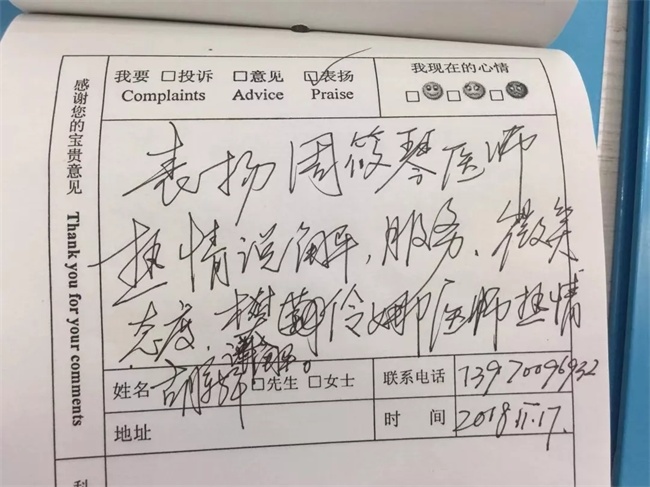 感谢您的宝贵意见 Thank you for your comments
我要 □投诉 □意见 ☑表扬
Complaints Advice Praise
我现在的心情
表扬周筱琴医师
热情说解,服务、微笑
态度、樊 伶娜医师热情
讲解。
姓名 胡 辉 □先生 □女士
联系电话 13970096932
地址
时 间 2018.11.17.
科